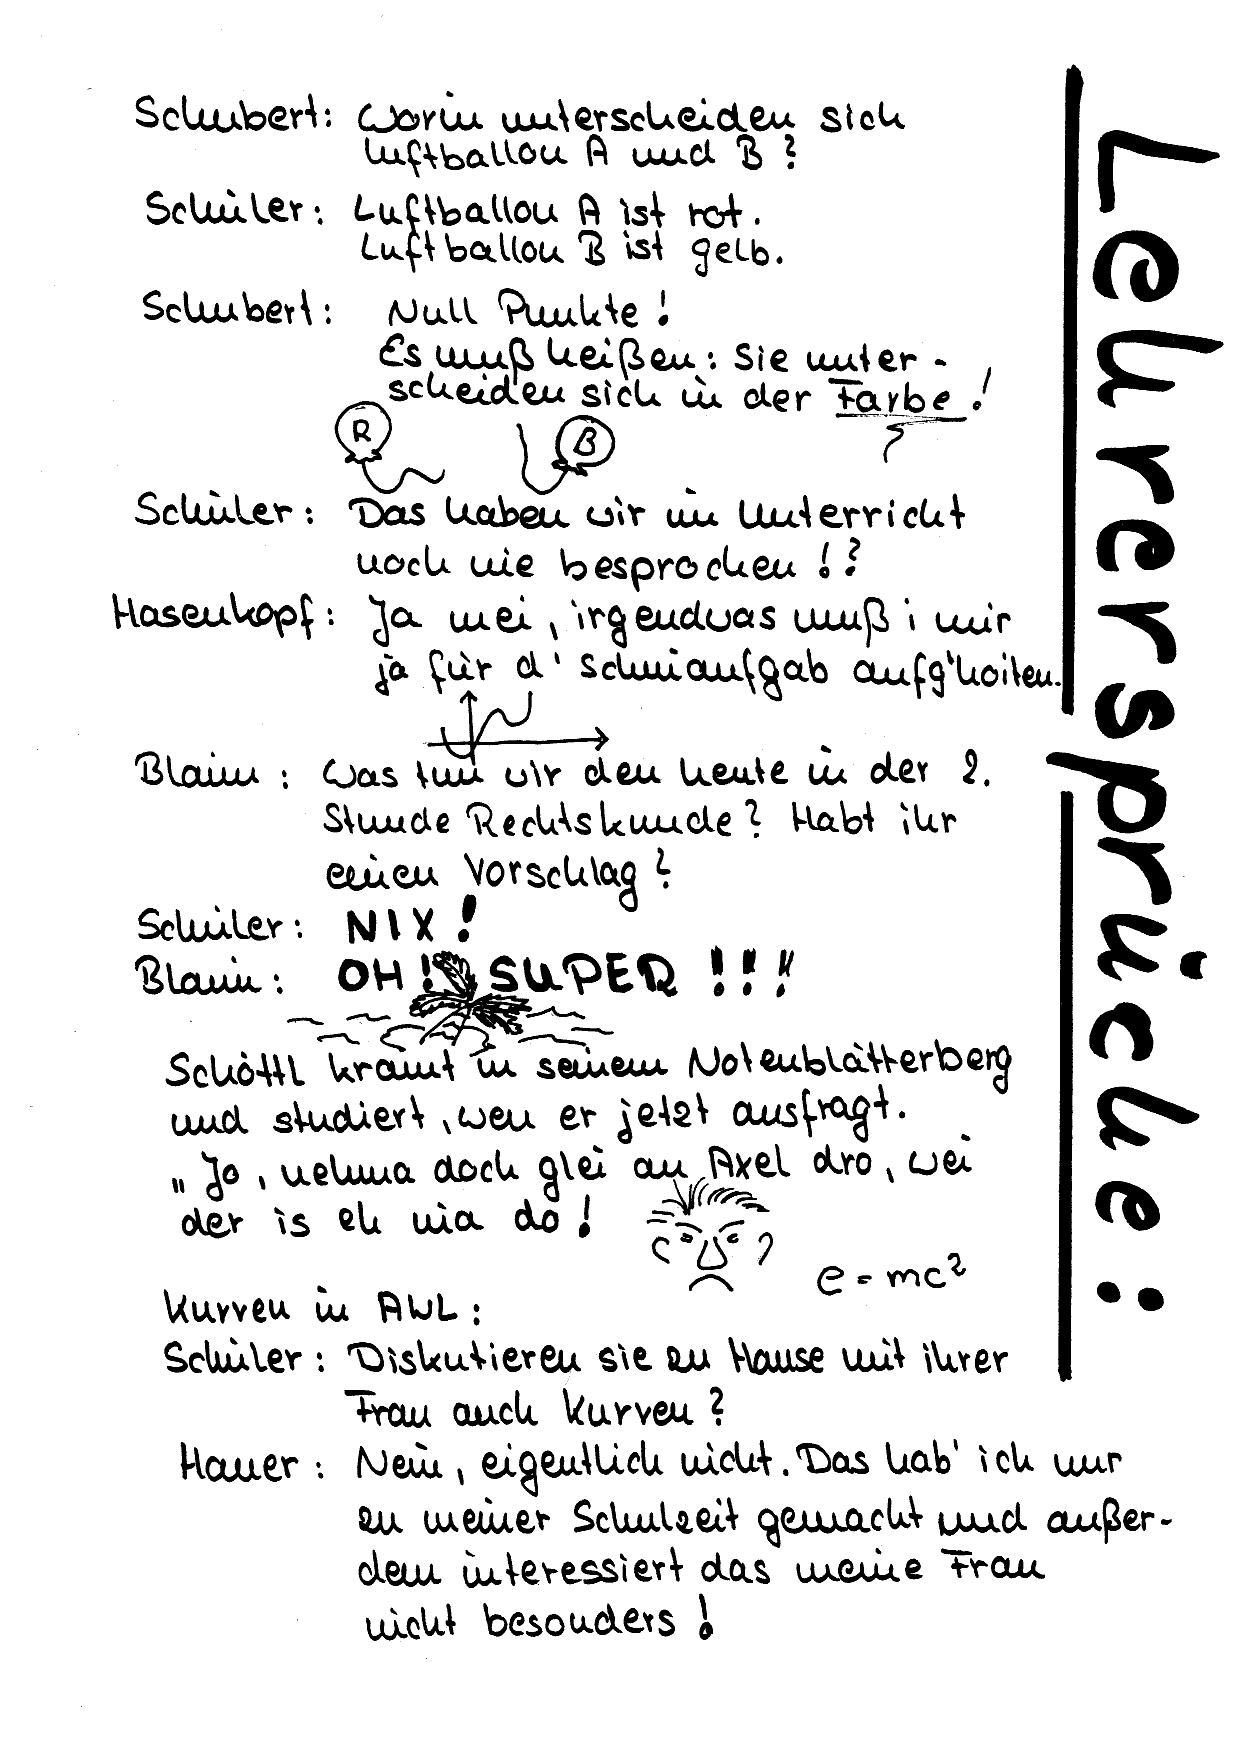 Lehrersprüche:
Schubert: Worin unterscheiden sich
Luftballon A und B?
Schüler: Luftballon A ist rot.
Luftballon B ist gelb.
Schubert: Null Punkte!
Es muß heißen: Sie unter-
scheiden sich in der Farbe!
R B
Schüler: Das haben wir im Unterricht
noch nie besprochen!?
Hasenkopf: Ja mei, irgendwas muß i mir
ja für d' Schuiaufgab aufg'hoiten.
Blaim: Was tun wir den heute in der 2.
Stunde Rechtskunde? Habt ihr
einen Vorschlag?
Schüler: NIX!
Blaim: OH! SUPER!!!
Schöttl kramt in seinem Notenblätterberg
und studiert, wen er jetzt ausfragt.
„Jo, nehma doch glei an Axel dro, wei
der is eh nia do!
e = mc²
Kurven in AWL:
Schüler: Diskutieren sie zu Hause mit ihrer
Frau auch Kurven?
Hauer: Nein, eigentlich nicht. Das hab' ich nur
zu meiner Schulzeit gemacht und außer-
dem interessiert das meine Frau
nicht besonders!